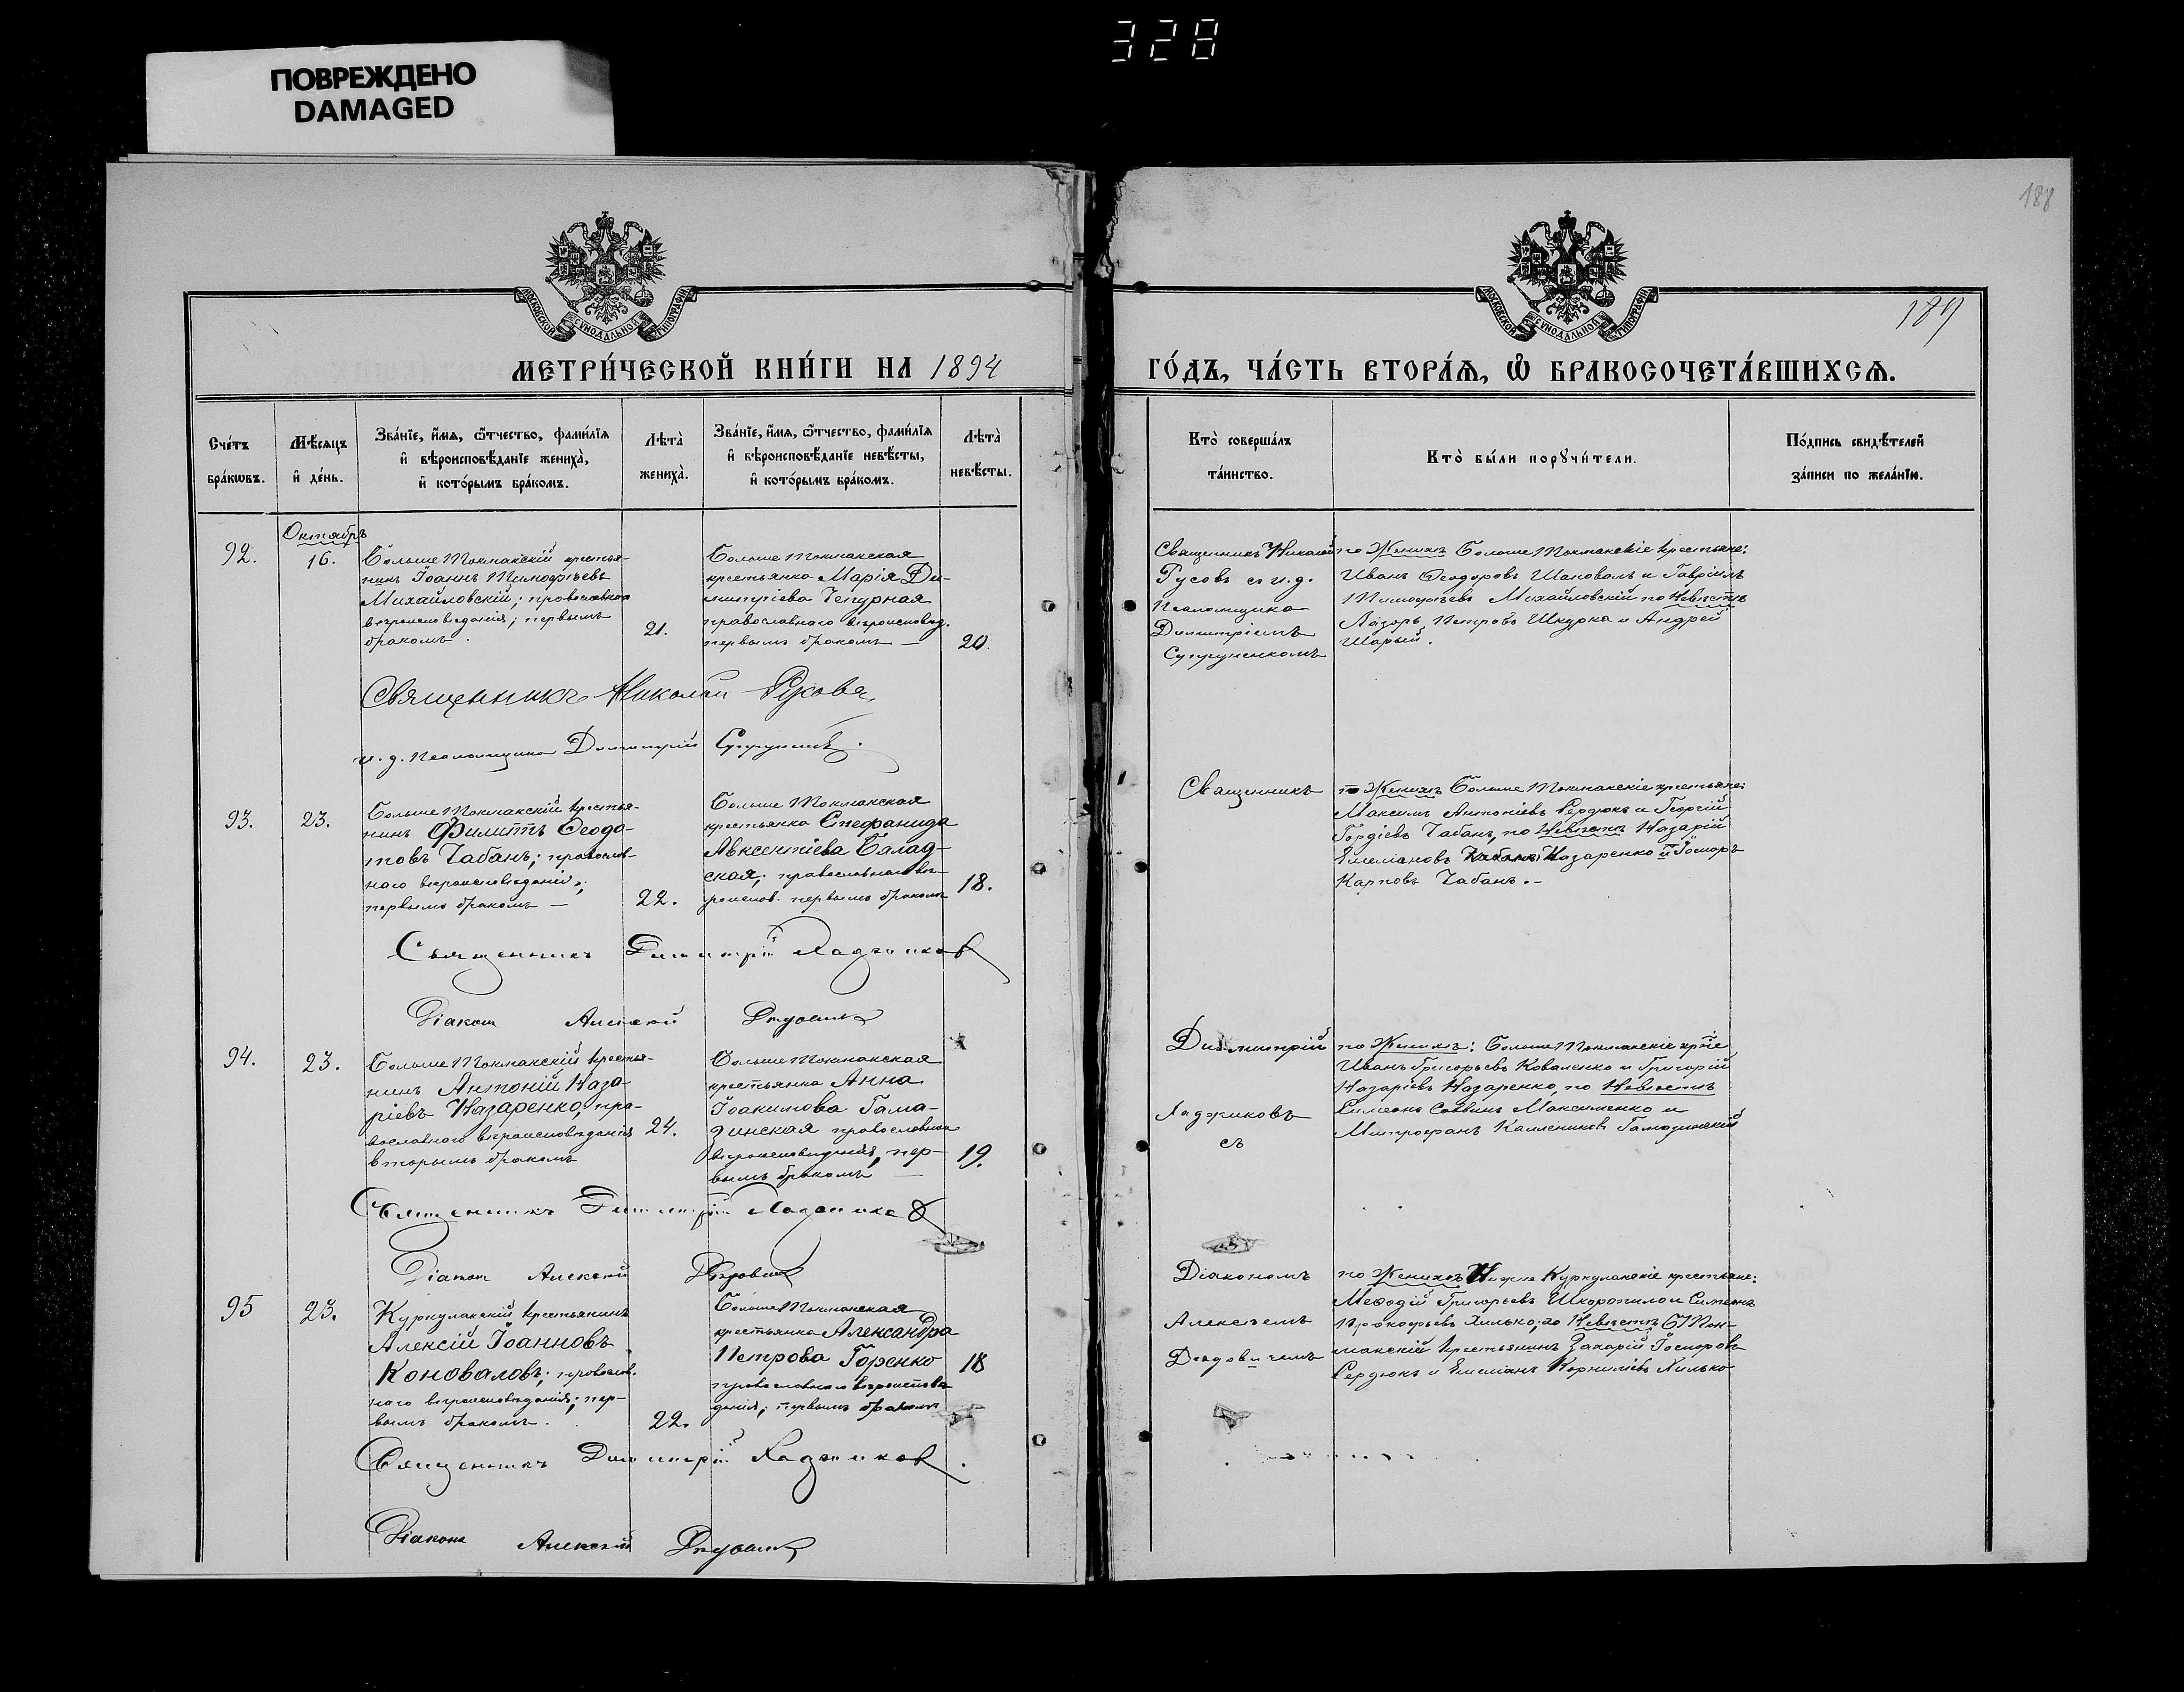 328
ПОВРЕЖДЕНО
DAMAGED
188
189
МОСКОВСКОЙ СУНОДАЛЬНОЙ ТИПОГРАФІИ
МОСКОВСКОЙ СУНОДАЛЬНОЙ ТИПОГРАФІИ
МЕТРИ́ЧЕСКОЙ КНИ́ГИ НА 1894
ГО́ДЪ, ЧА́СТЬ ВТОРА́Ѧ, Ѽ БРАКОСОЧЕТА́ВШИХСѦ.
Сче́тъ
бра́кѡвъ.
Мѣ́сяцъ
и҆ де́нь.
Зва́нїе, и҆́мѧ, ѻ҆́тчество, фами́лїѧ
и҆ вѣроисповѣ́данїе жениха̀,
и҆ кото́рымъ бра́комъ.
Лѣта̀
жениха̀.
Зва́нїе, и҆́мѧ, ѻ҆́тчество, фами́лїѧ
и҆ вѣроисповѣ́данїе невѣ́сты,
и҆ кото́рымъ бра́комъ.
Лѣта̀
невѣ́сты.
Кто̀ соверша́лъ
та́инство.
Кто̀ бы́ли порꙋчи́тели.
По́дпись свидѣ́телей
за́писи по жела́нїю.
92.
Октябрь
16.
Больше Токмакскій крестья-
нинъ Іоаннъ Тимофѣевъ
Михайловскій; православнаго
вѣроисповѣданія; первымъ
бракомъ.
21.
Больше Токмакская
крестьянка Марія Ди-
митріева Чепурная
православного вѣроисповѣд.
первымъ бракомъ —
20.
Священникъ Николай
Русовъ съ и.д.
Псаломщика
Димитріемъ
Супруненкомъ
по Женихѣ Больше Токмакскіе крестьяне:
Иванъ Ѳеодоровъ Шаповалъ и Гавріилъ
Тимофѣевъ Михайловскій по Невѣстѣ
Лазорь Петровъ Шкурка и Андрей
Шарый.
Священникъ Николай Русовъ
и. д. Псаломщика Димитрій
93.
23.
Больше Токмакскій крестья-
нинъ Филиппъ Ѳеодо-
товъ Чабанъ; православ-
наго вѣроисповѣданія;
первымъ бракомъ —
22.
Больше Токмакская
крестьянка Стефанида
Авксентіева Балад-
ская; православнаго вѣ-
роиспов. первымъ бракомъ
18.
Священникъ
по Женихѣ Больше Токмакскіе крестьяне:
Максимъ Антоніевъ Сердюкъ и Георгій
Гордіевъ Чабанъ, по Невѣстѣ Назарій
Емеліановъ Назаренко и Іосифъ
Карповъ Чабанъ.—
Священникъ Димитрій Хаджиновъ
Діаконъ Алексѣй
94.
23.
Больше Токмакскій крестья-
нинъ Антоній Наза-
ріевъ Назаренко, пра-
вославнаго вѣроисповѣданія
вторымъ бракомъ
24.
Больше Токмакская
крестьянка Анна
Іоакимова Гама-
зинская православнаго
вѣроисповѣданія, пер-
вымъ бракомъ —
19.
Димитрій
Хаджиновъ
съ
по Женихѣ: Больше Токмакскіе кр-не
Иванъ Григорьевъ Коваленко и Григорій
Назаріевъ Назаренко, по Невѣстѣ
Симеонъ Саввинъ Максименко и
Митрофанъ Гамазинскій
Священникъ Димитрій Хаджиновъ
Діаконъ Алексѣй
95
23.
Куркулакскій крестьянинъ
Алексій Іоанновъ
Коноваловъ; православ.
наго вѣроисповѣданія; пер-
вымъ бракомъ.
22.
Больше Токмакская
крестьянка Александра
Петрова Горенко
православнаго вѣроисповѣ-
данія; первымъ бракомъ
18
Діакономъ
Алексѣемъ
по Женихѣ Куркулакскіе крестьяне:
Меѳодій Григорьевъ Шкоропило и Симеонъ
Прокофьевъ Хилько; по Невѣстѣ Б Ток-
макскій крестьянинъ Захарій
Сердюкъ и Емеліанъ Корниліевъ Хилько
Священникъ Димитрій Хаджиновъ.
Діаконъ Алексѣй